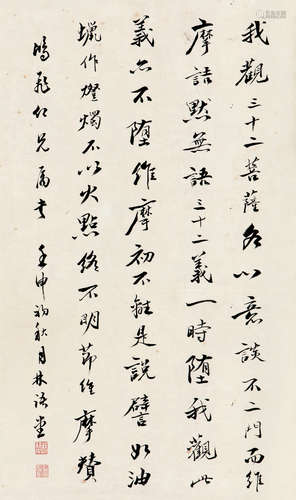 我觀三十二菩薩各以意談不二門而維
摩詰默無語三十二義一時墮我觀此
義亦不墮維摩初不離是說譬如油
蠟作燈燭不以火點終不明節維摩贊
鴻飛仁兄屬書 壬申初秋月林語堂